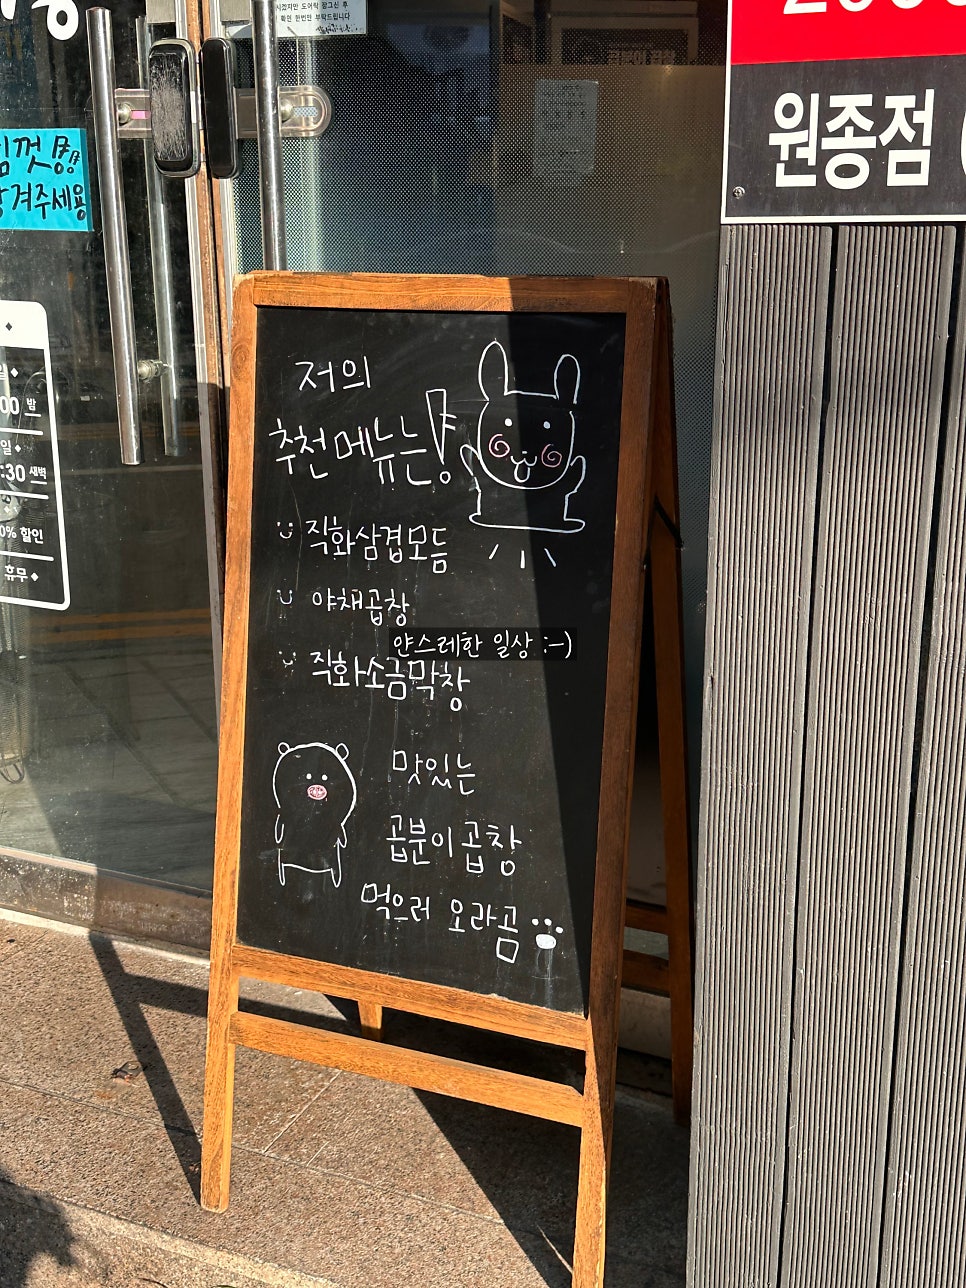 확인 한번만 부탁드립니다
당겨주세용
00 밤
:30 새벽
0% 할인
휴무
원종점
저의
추천메뉴는!
직화삼겹모듬
야채곱창
얀스레한 일상 :-)
직화소금막창
맛있는
곱분이곱창
먹으러 오라곰